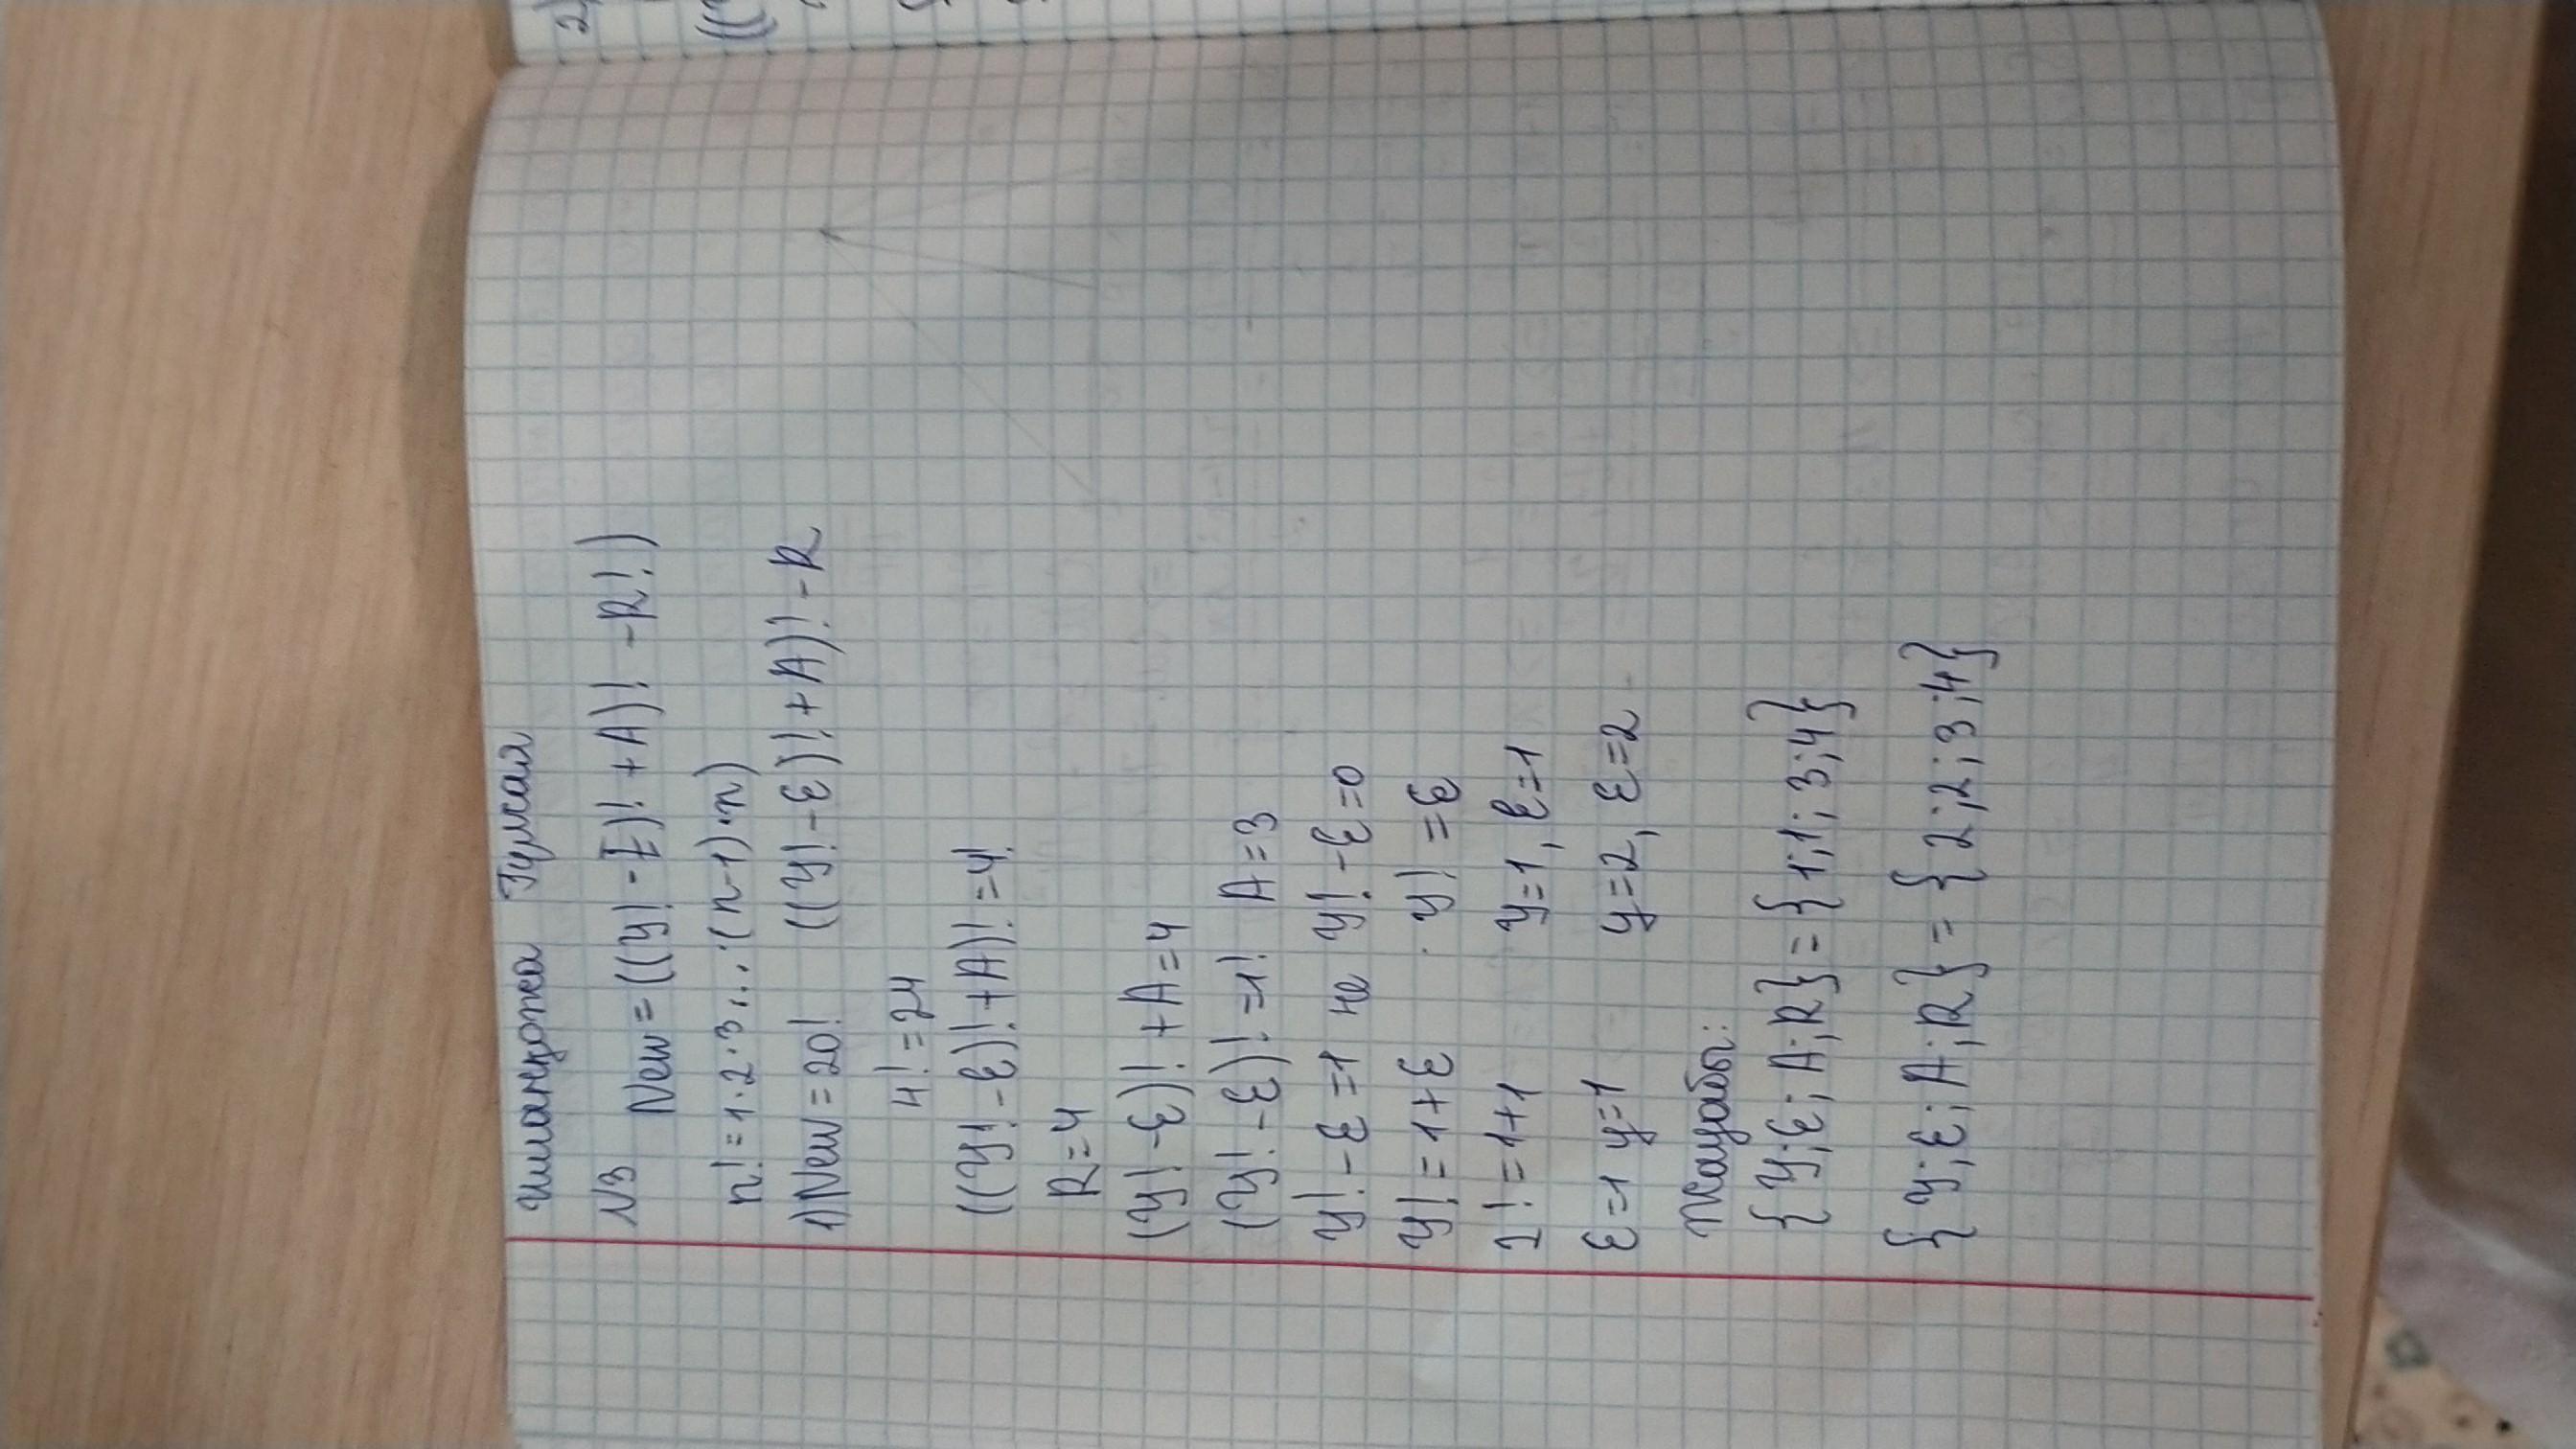 Шманқожа Гулжай
N3 New = ((y! - E)! + A)! - R!)
n! = 1·2·3...·(n-1)·n)
1) New = 20! ((y! - E)! + A)! - R
4! = 24
((y! - E)! + A)! = 4!
R = 4
(y! - E)! + A = 4
(y! - E)! = 1! A = 3
y! - E = 1 не y! - E = 0
y! = 1 + E y! = E
2! = 1 + 1 y = 1, E = 1
E = 1 y = 1 y = 2, E = 2
Жауабы:
{y; E; A; R} = {1; 1; 3; 4}
{y; E; A; R} = {2; 2; 3; 4}
2)
((